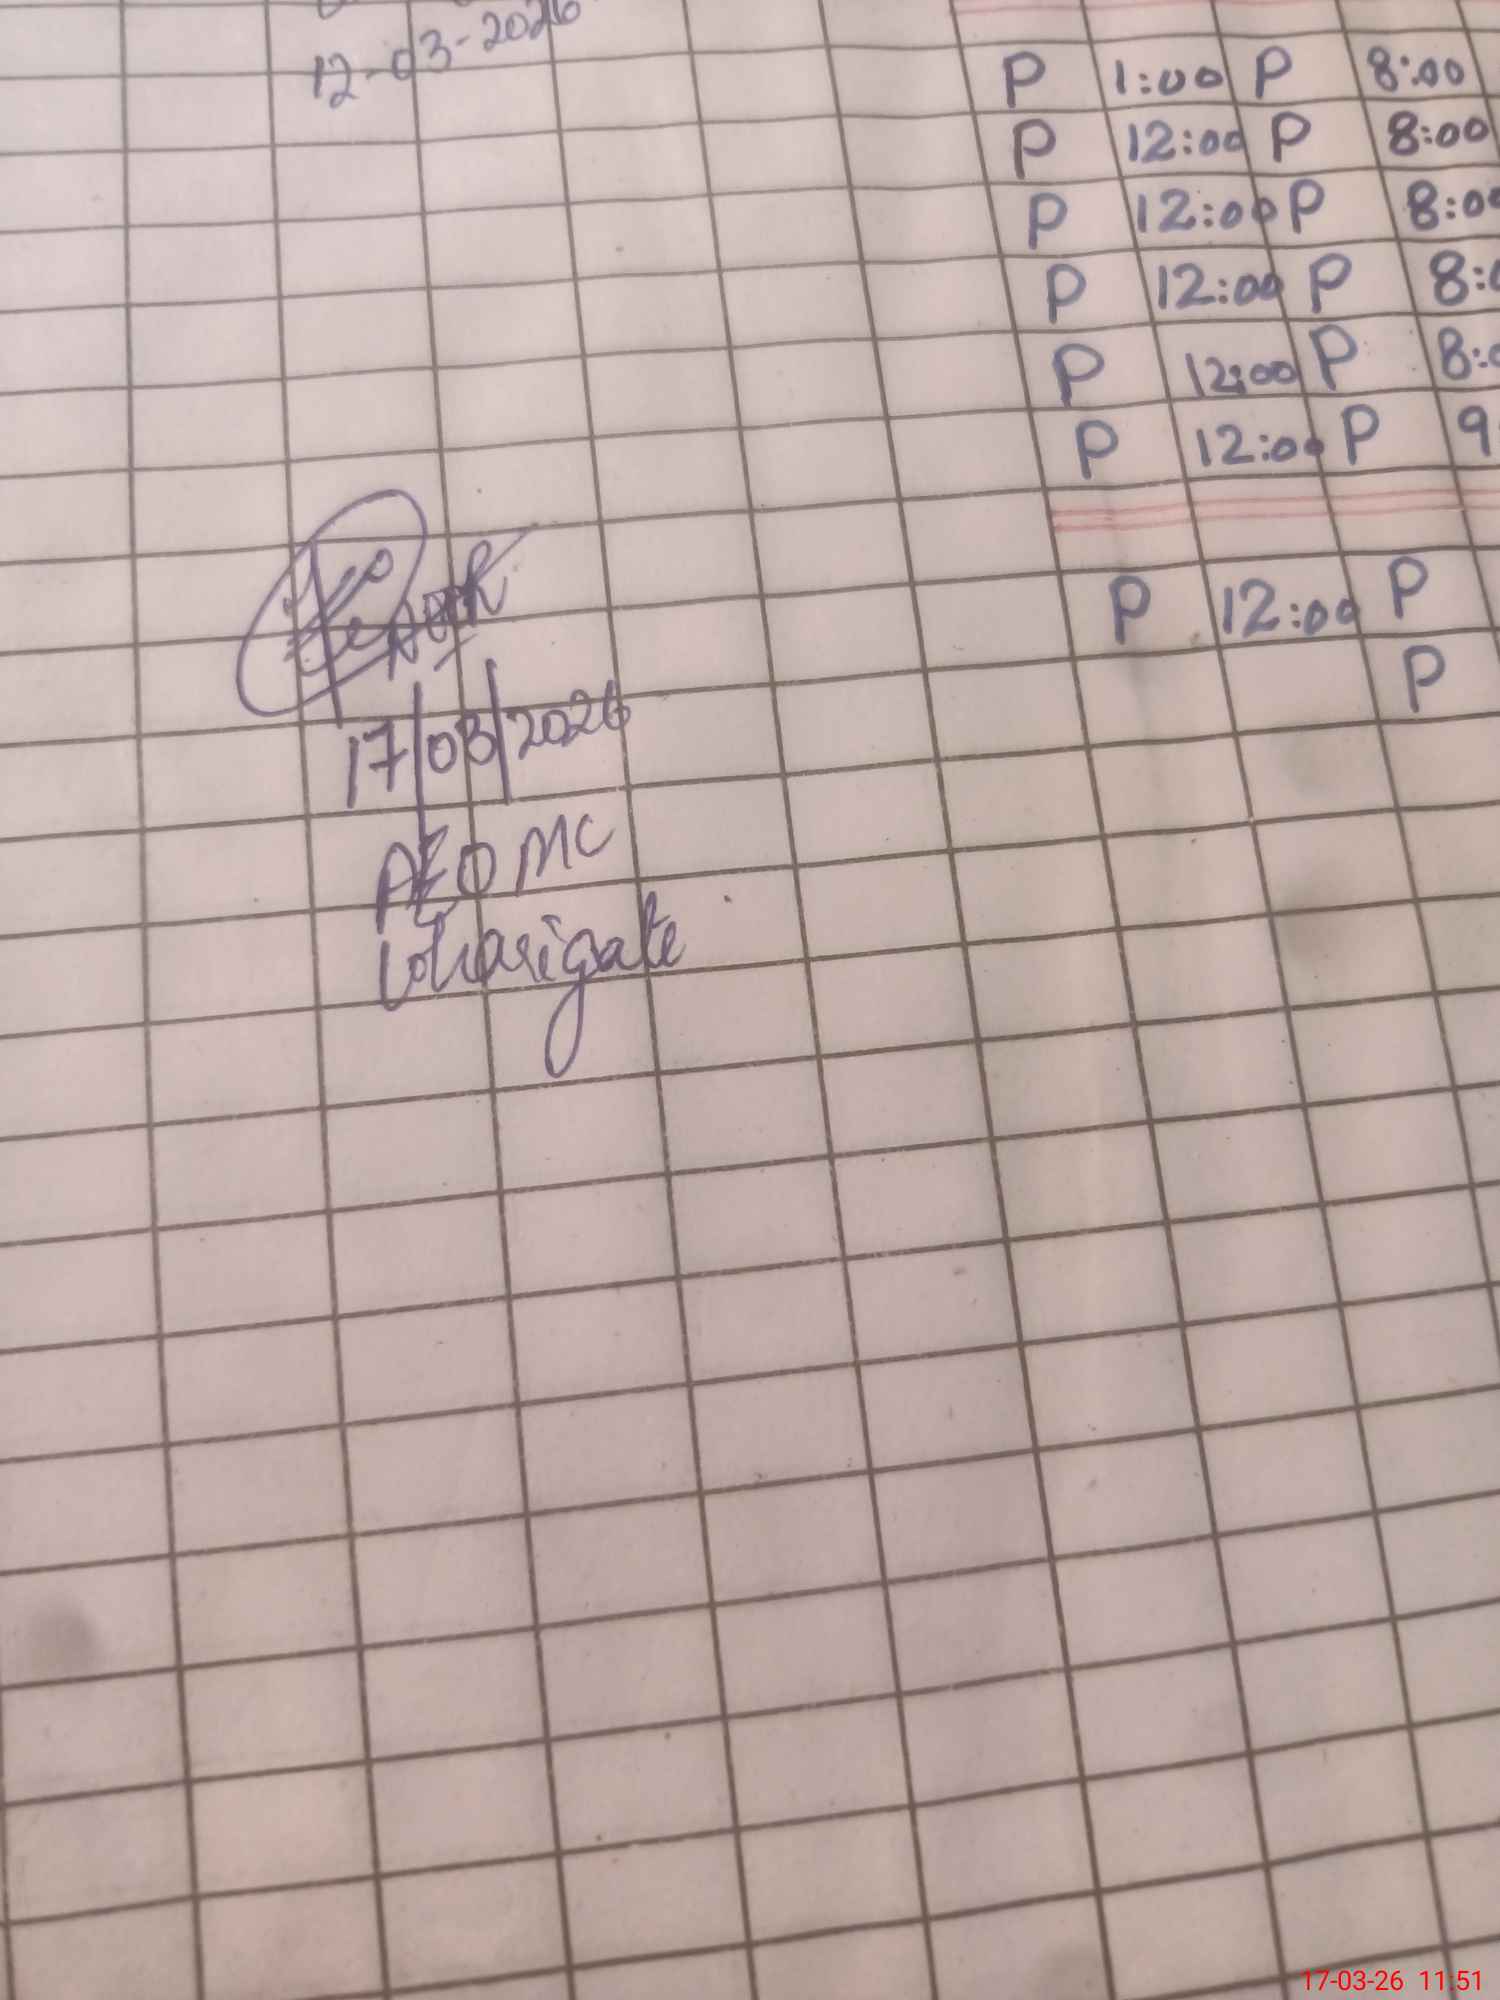 12-03-2026
P 1:00 P 8:00
P 12:00 P 8:00
P 12:00 P 8:00
P 12:00 P 8:0
P 12:00 P 8:0
P 12:00 P 9
P 12:00 P
P
17/03/2026
AEO MC
Loharigate
17-03-26 11:51